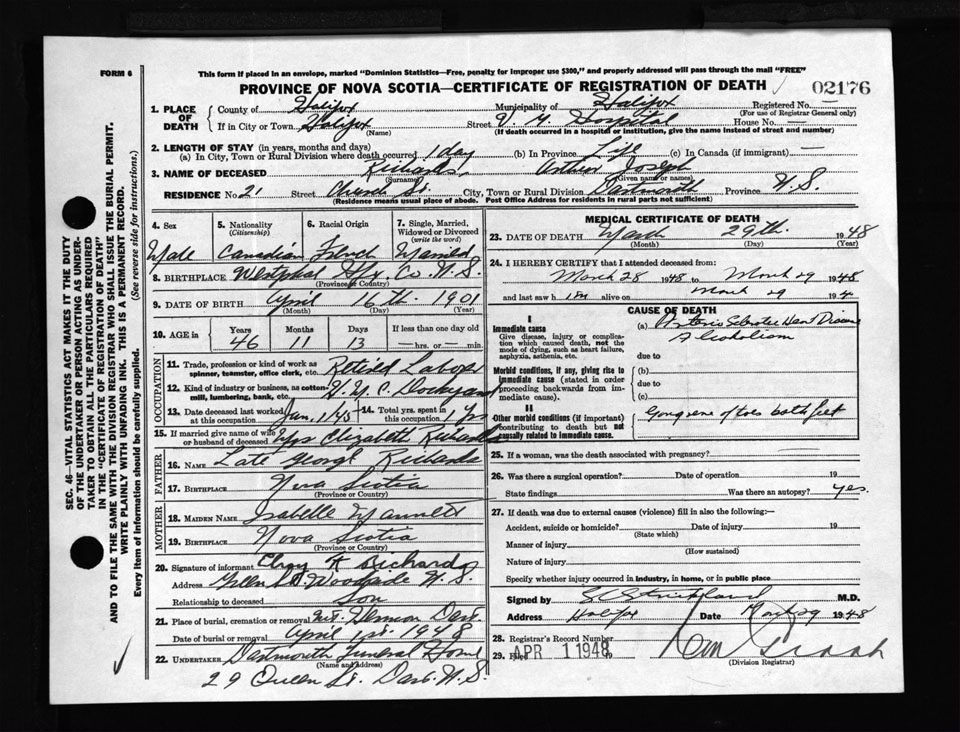 FORM 6
This form if placed in an envelope, marked "Dominion Statistics—Free, penalty for improper use $300," and properly addressed will pass through the mail "FREE"
PROVINCE OF NOVA SCOTIA—CERTIFICATE OF REGISTRATION OF DEATH
02176
1. PLACE OF DEATH
County of Halifax Municipality of Halifax Registered No. —
(For use of Registrar General only)
If in City or Town Halifax Street V. G. Hospital House No. —
(Name) (If death occurred in a hospital or institution, give the name instead of street and number)
2. LENGTH OF STAY (in years, months and days)
(a) In City, Town or Rural Division where death occurred 1 day (b) In Province Life (c) In Canada (if immigrant) —
3. NAME OF DECEASED Richards, Arthur Joseph
(Surname) (Given name or names)
RESIDENCE No. 21 Street Church St. City, Town or Rural Division Dartmouth Province N.S.
(Residence means usual place of abode. Post Office Address for residents in rural parts not sufficient)
4. Sex 5. Nationality (Citizenship) 6. Racial Origin 7. Single, Married, Widowed or Divorced (write the word)
Male Canadian French Married
8. BIRTHPLACE Westphal Hfx. Co. N.S.
(Province or Country)
9. DATE OF BIRTH April 16th. 1901
(Month) (Day) (Year)
10. AGE in Years Months Days If less than one day old
46 11 13 —hrs. or —min.
OCCUPATION
11. Trade, profession or kind of work as spinner, teamster, office clerk, etc. Retired Laborer
12. Kind of industry or business, as cotton-mill, lumbering, bank, etc. H.M.C. Dockyard
13. Date deceased last worked at this occupation Jan. 1/45 14. Total yrs. spent in this occupation 1 Yrs
15. If married give name of wife or husband of deceased Mrs Elizabeth Richards
FATHER
16. NAME Late George Richards
17. BIRTHPLACE Nova Scotia
(Province or Country)
MOTHER
18. MAIDEN NAME Isabelle Mannett
19. BIRTHPLACE Nova Scotia
(Province or Country)
20. Signature of informant Elroy K Richards
Address Green St. Woodside N.S.
Relationship to deceased Son
21. Place of burial, cremation or removal Mt. Hermon Dart.
Date of burial or removal April 1st. 1948
22. UNDERTAKER Dartmouth Funeral Home
(Name and Address)
29 Queen St. Dart. N.S.
MEDICAL CERTIFICATE OF DEATH
23. DATE OF DEATH March 29th. 1948
(Month) (Day) (Year)
24. I HEREBY CERTIFY that I attended deceased from:
March 28 1948 to March 29 1948
and last saw him alive on March 29 194
CAUSE OF DEATH
I
Immediate cause
Give disease, injury or complication which caused death, not the mode of dying, such as heart failure, asphyxia, asthenia, etc.
(a) Arterio Sclerotic Heart Disease
Alcoholism
due to
Morbid conditions, if any, giving rise to immediate cause (stated in order proceeding backwards from immediate cause).
(b)
due to
(c)
II
Other morbid conditions (if important) contributing to death but not causally related to immediate cause.
Gangrene of toes both feet
25. If a woman, was the death associated with pregnancy?
26. Was there a surgical operation? Date of operation 19
State findings Was there an autopsy? Yes.
27. If death was due to external causes (violence) fill in also the following:—
Accident, suicide or homicide? Date of injury 19
(State which)
Manner of injury
(How sustained)
Nature of injury
Specify whether injury occurred in industry, in home, or in public place
Signed by Strickland M.D.
Address Halifax Date March 29 1948
28. Registrar's Record Number
29. Filed APR 1 1948
(Division Registrar)
SEC. 46—VITAL STATISTICS ACT MAKES IT THE DUTY
OF THE UNDERTAKER OR PERSON ACTING AS UNDERTAKER
TO OBTAIN ALL THE PARTICULARS REQUIRED
IN THE "CERTIFICATE OF REGISTRATION OF DEATH"
AND TO FILE THE SAME WITH THE DIVISION REGISTRAR WHO SHALL ISSUE THE BURIAL PERMIT.
WRITE PLAINLY WITH UNFADING INK. THIS IS A PERMANENT RECORD.
Every item of information should be carefully supplied. (See reverse side for instructions.)